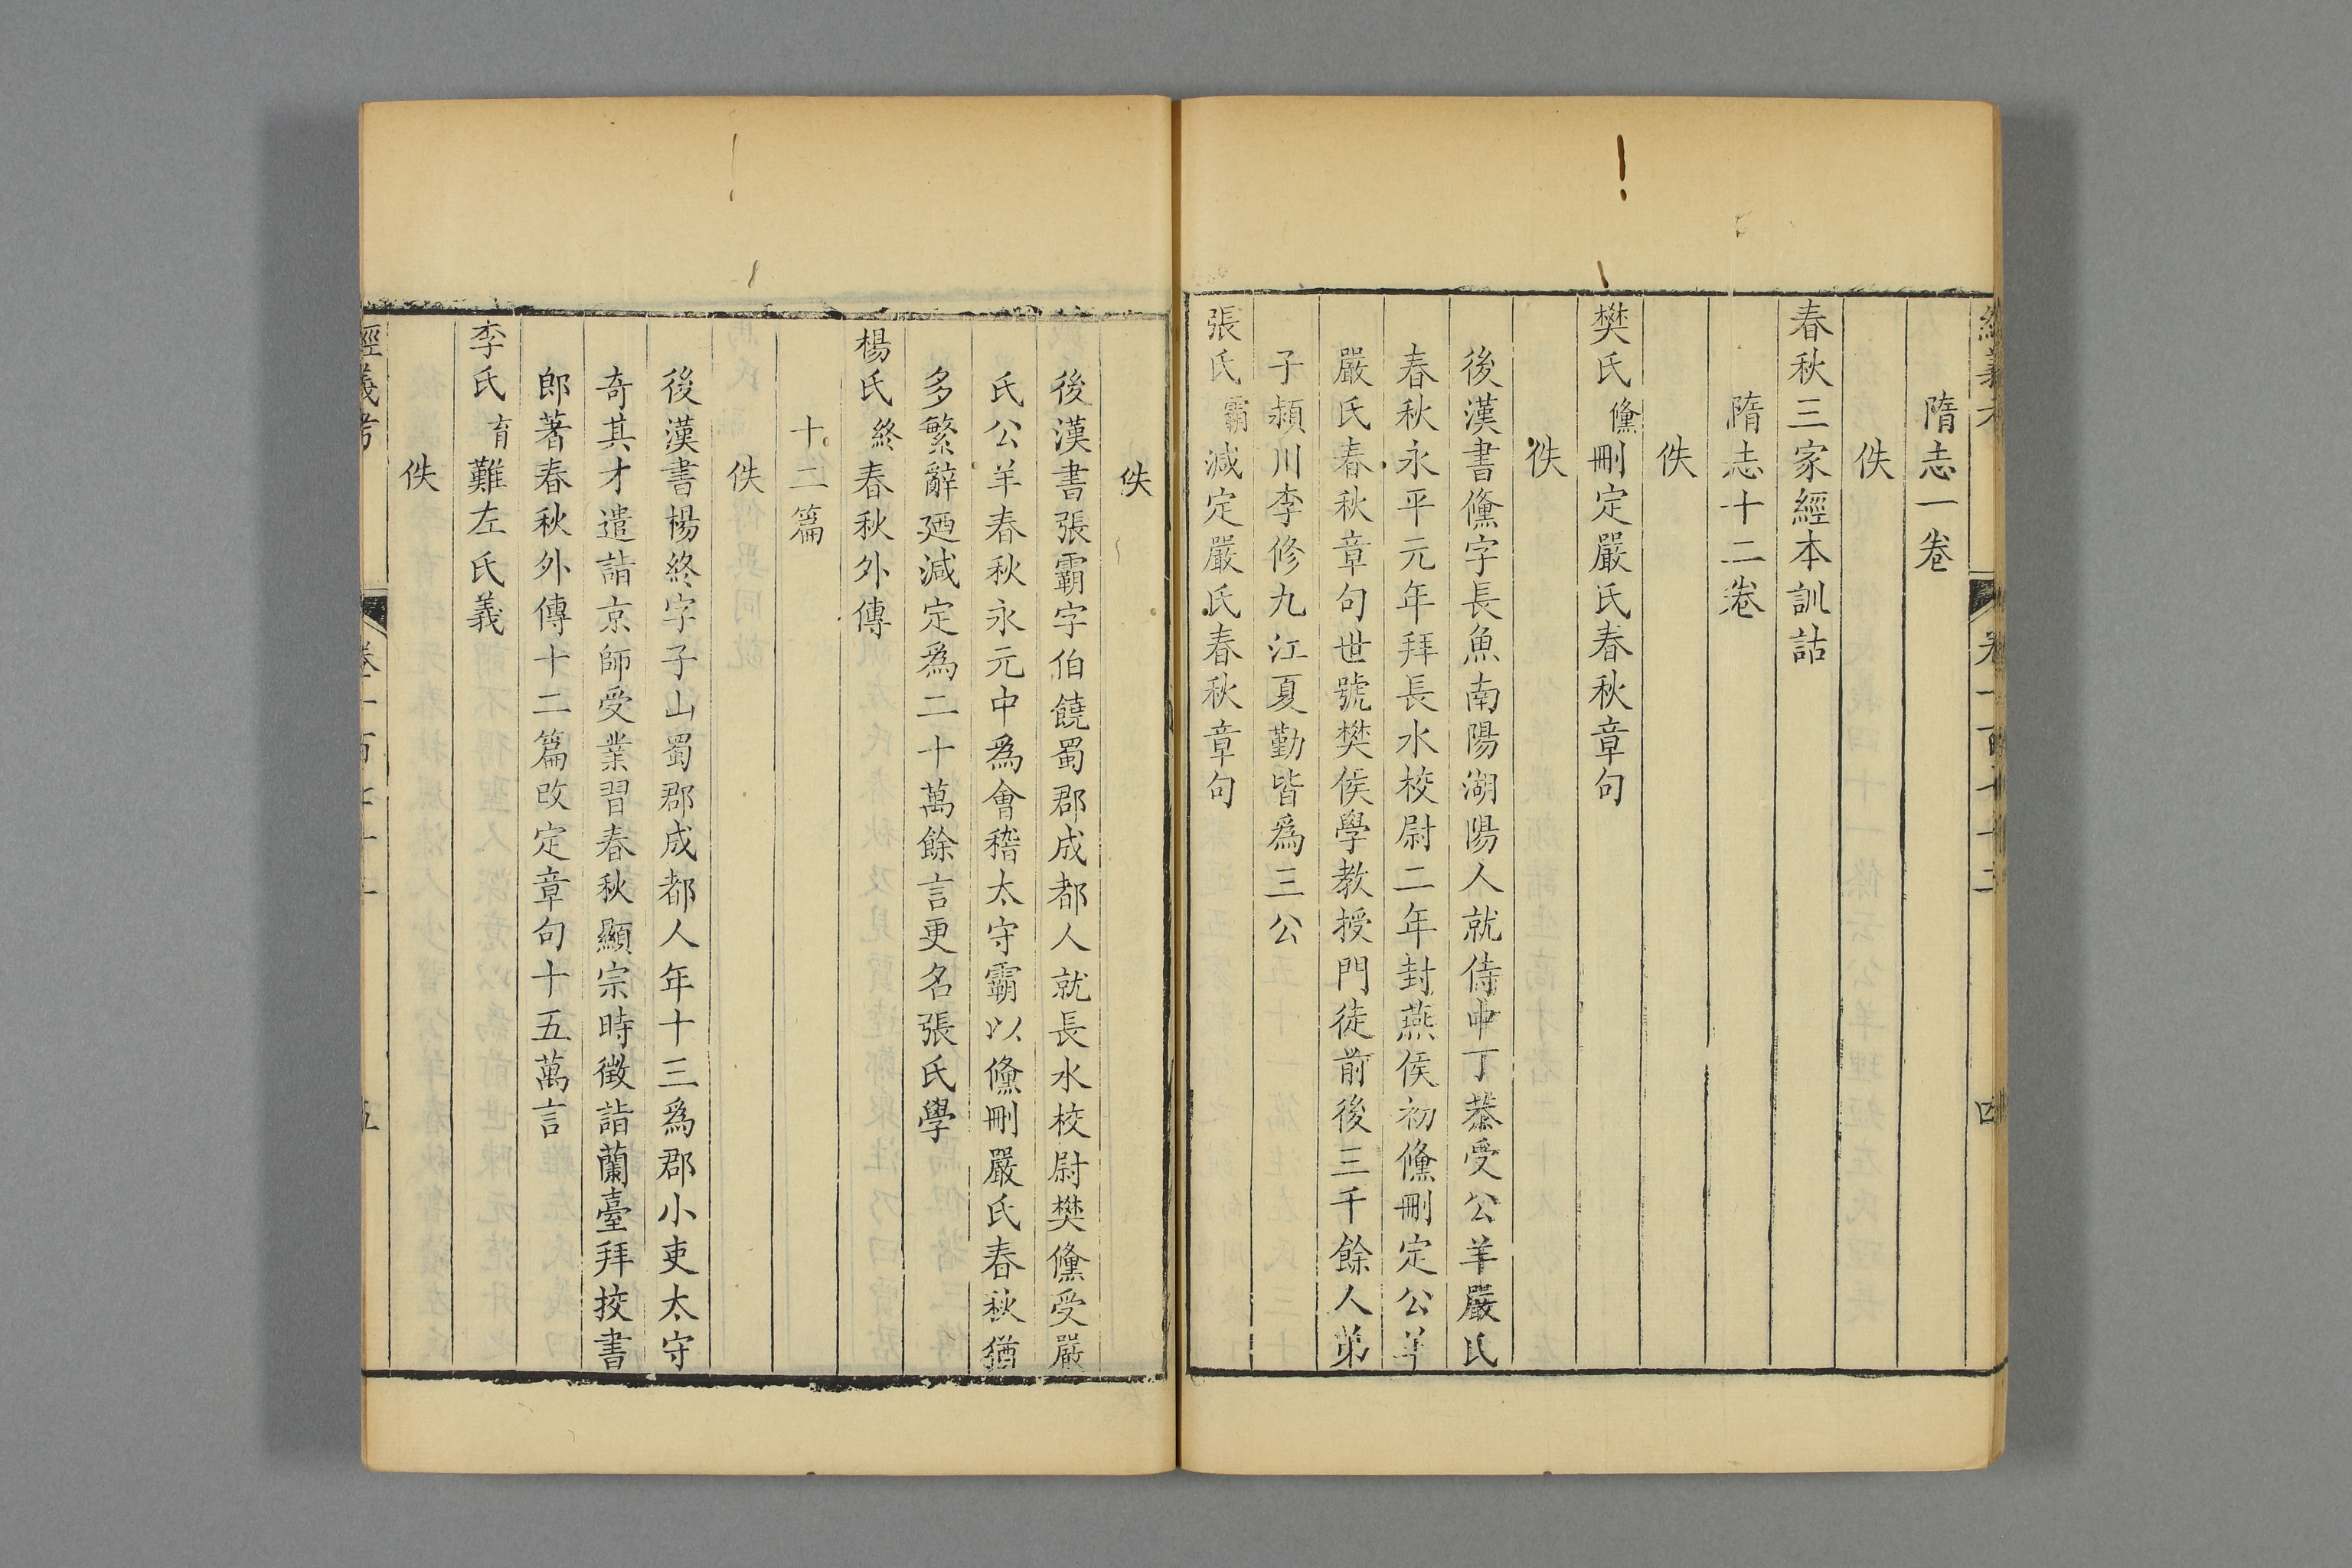 隋志一卷
佚
春秋三家經本訓詁
隋志十二卷
佚
樊氏儵刪定嚴氏春秋章句
佚
後漢書儵字長魚南陽湖陽人就侍中丁恭受公羊嚴氏
春秋永平元年拜長水校尉二年封燕侯初儵刪定公羊
嚴氏春秋章句世號樊侯學教授門徒前後三千餘人弟
子潁川李修九江夏勤皆爲三公
張氏霸減定嚴氏春秋章句
佚
後漢書張霸字伯饒蜀郡成都人就長水校尉樊儵受嚴
氏公羊春秋永元中爲會稽太守霸以儵刪嚴氏春秋猶
多繁辭廼減定爲二十萬餘言更名張氏學
楊氏終春秋外傳
十二篇
佚
後漢書楊終字子山蜀郡成都人年十三爲郡小吏太守
奇其才遣詣京師受業習春秋顯宗時徵詣蘭臺拜挍書
郎著春秋外傳十二篇改定章句十五萬言
李氏育難左氏義
佚
經義考